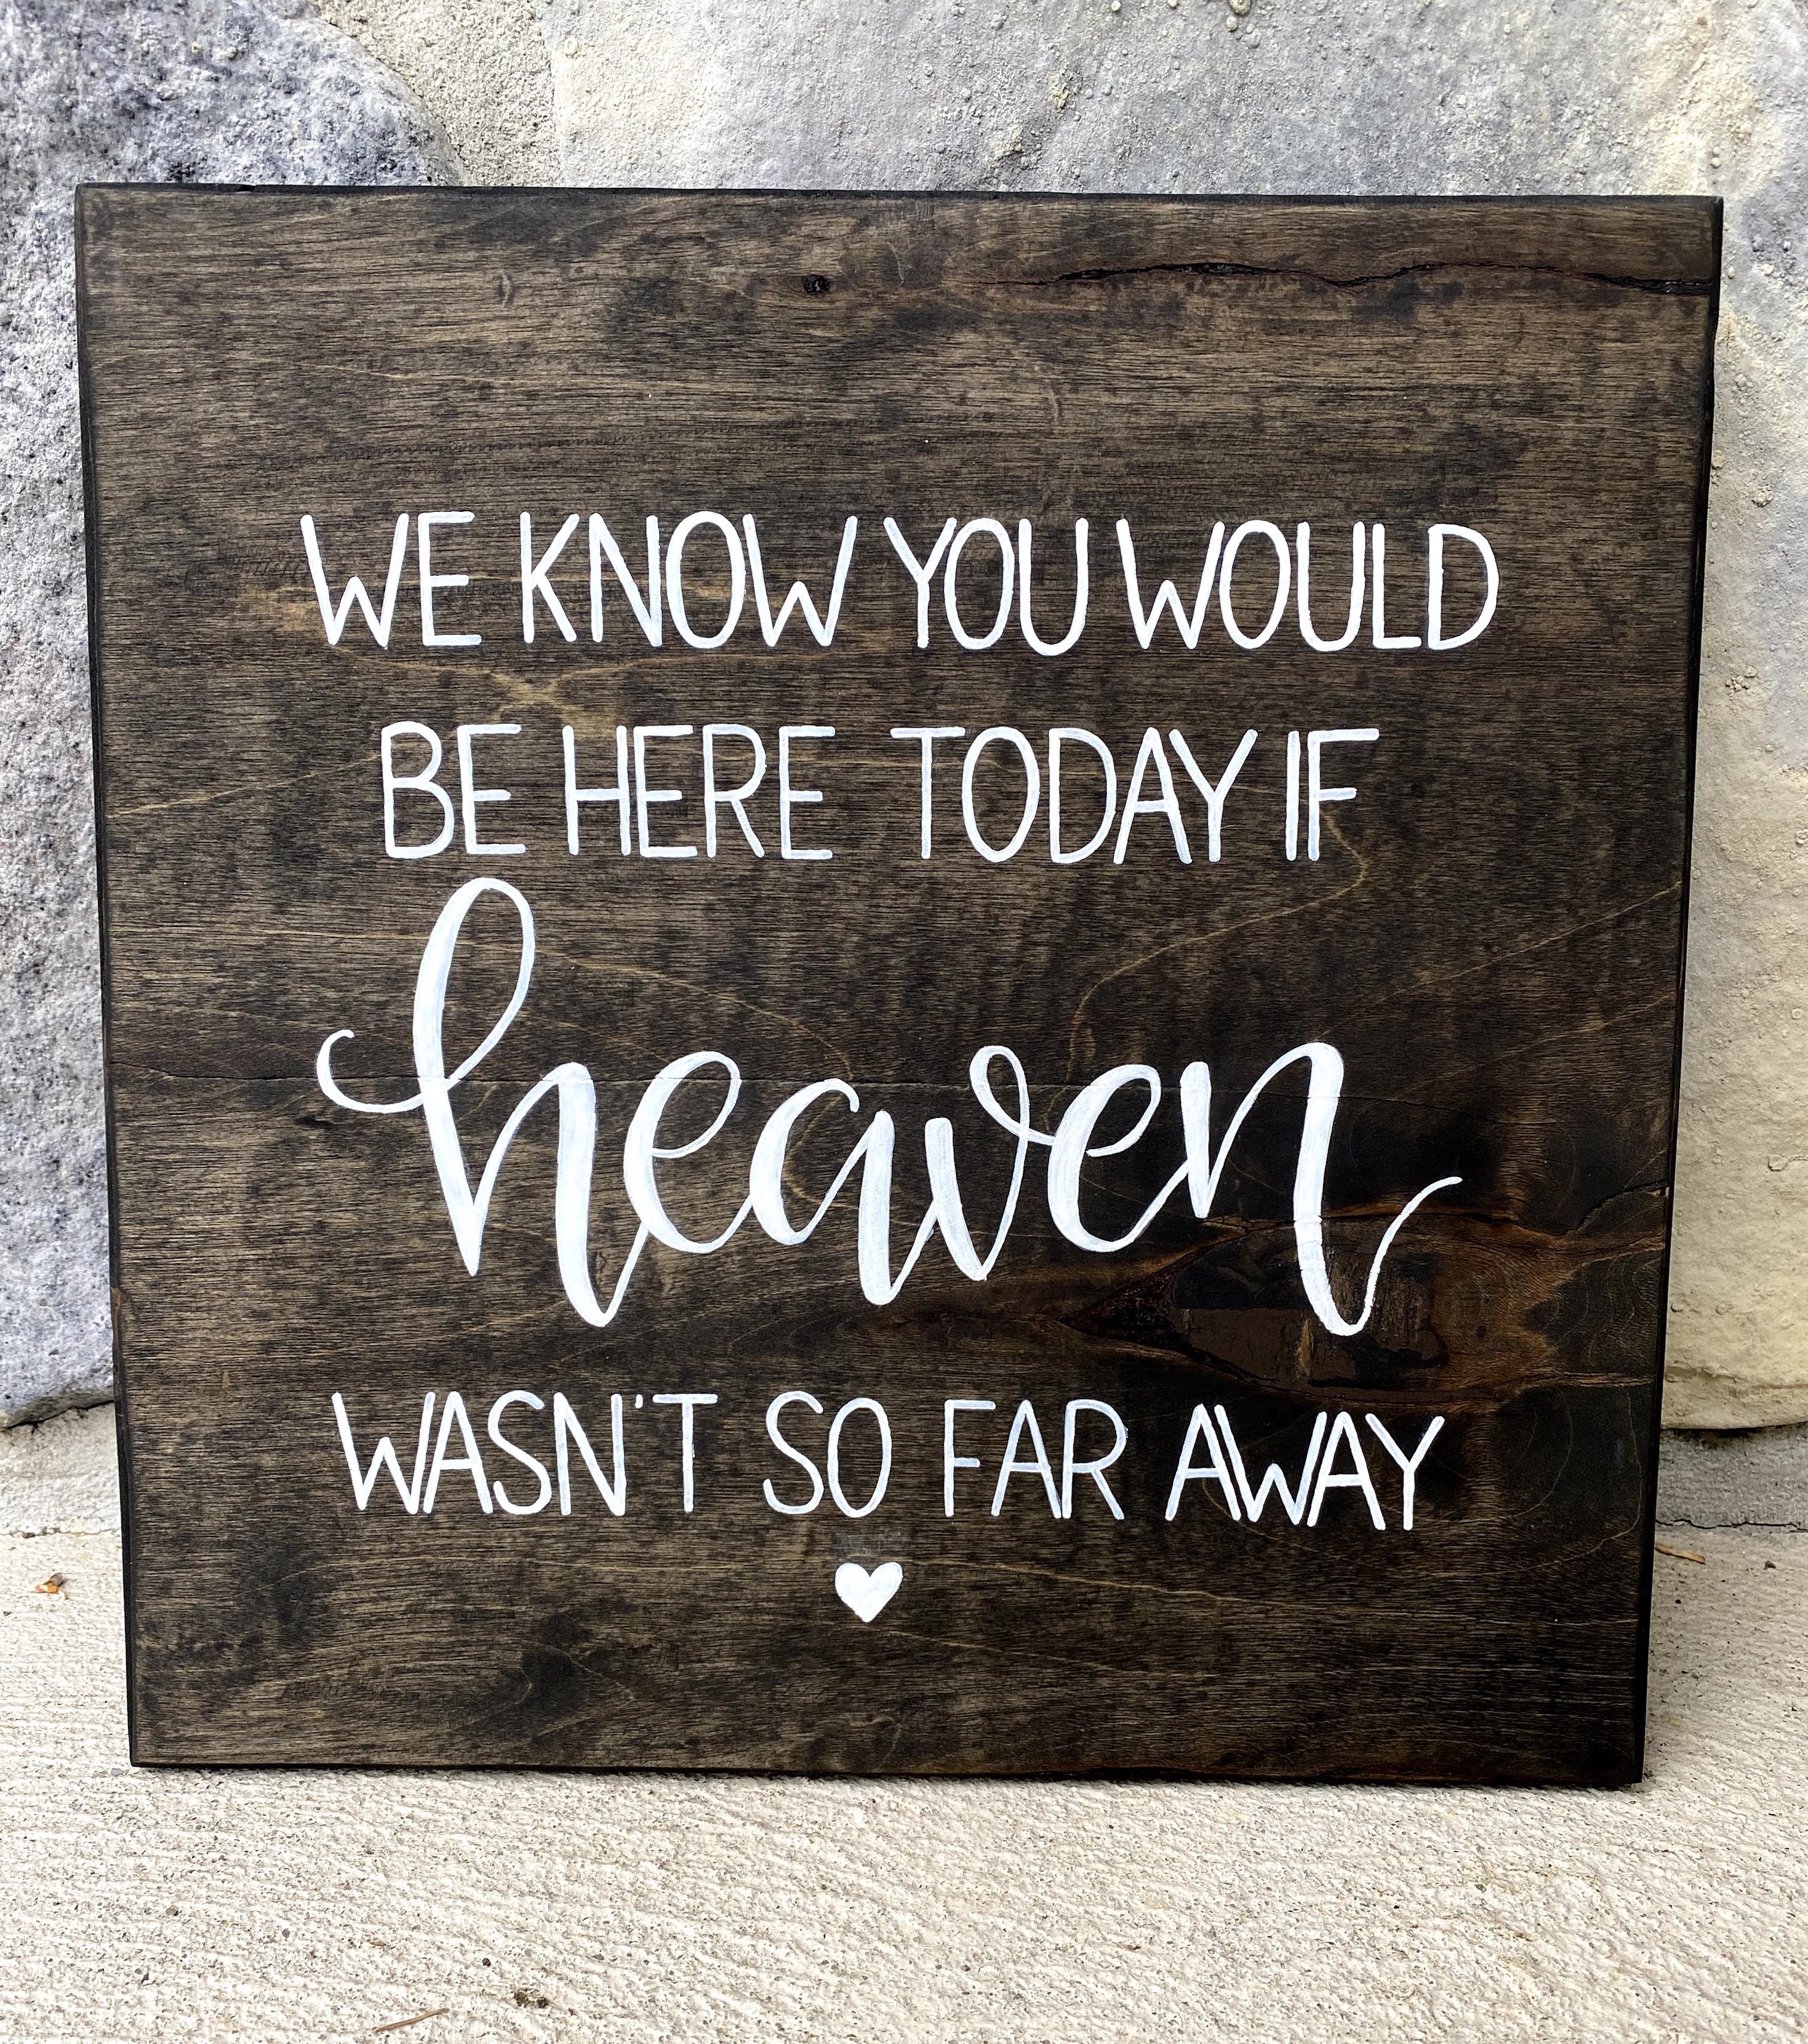 WE KNOW YOU WOULD
BE HERE TODAY IF
heaven
WASN'T SO FAR AWAY